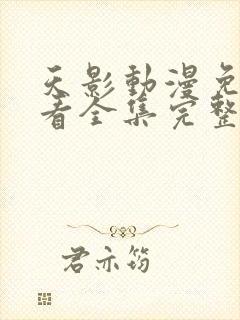 天影動漫免
看全集完整
君亦筠